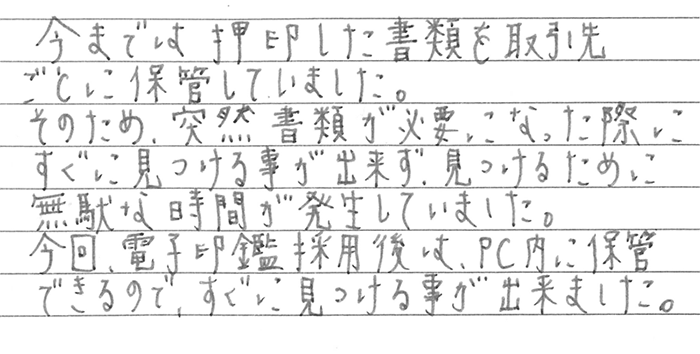 今までは押印した書類を取引先
ごとに保管していました。
そのため、突然書類が必要になった際に
すぐに見つける事が出来ず、見つけるために
無駄な時間が発生していました。
今回、電子印鑑採用後は、PC内に保管
できるので、すぐに見つける事が出来ました。